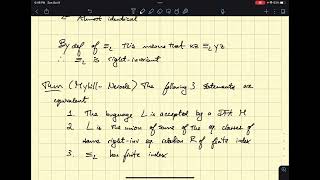 6:48 PM Sun Oct 8
Almost identical
By def of ≡L this means that xz ≡L yz
∴ ≡L is right-invariant
Thm (Myhill-Nerode) The following 3 statements are
equivalent
1. The language L is accepted by a DFA M
2. L is the union of some of the eq. classes of
some right-inv eq relation R of finite index
3. ≡L has finite index